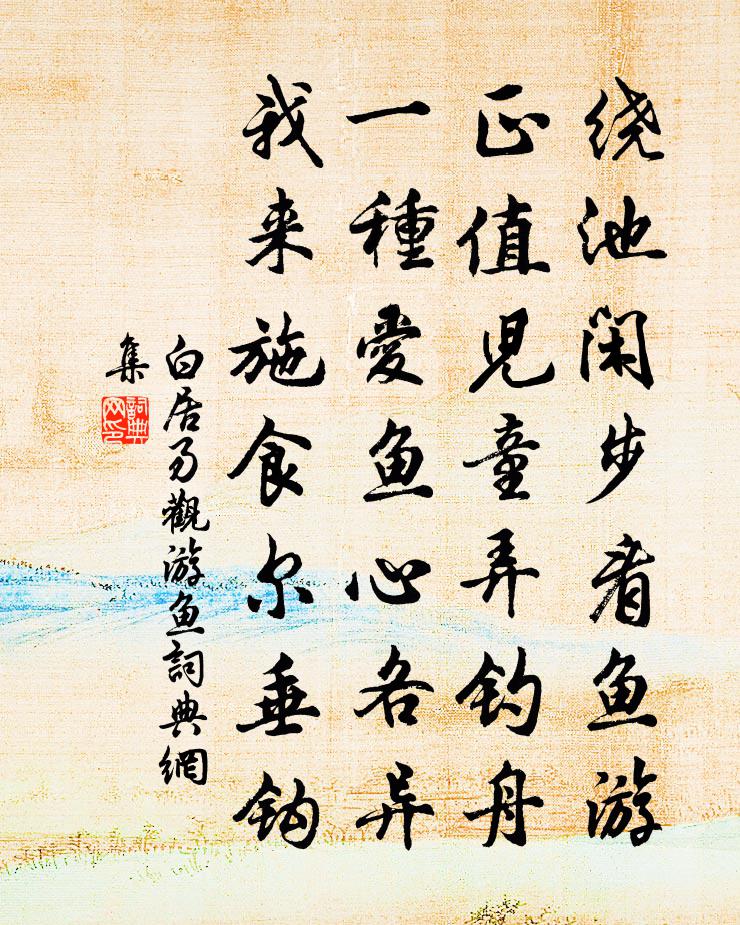 绕池闲步看鱼游
正值児童弄钓舟
一種愛鱼心各异
我来施食尔垂钩
白居易觀游鱼詞典網
集
詞典
网印